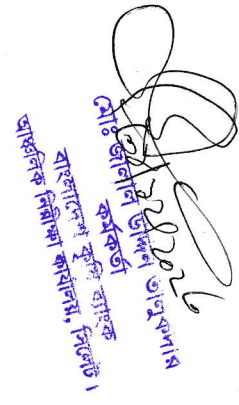 মোঃ জালাল উদ্দিন তালুকদার
কর্মকর্তা
বাংলাদেশ কৃষি ব্যাংক
আঞ্চলিক নিরীক্ষা কার্যালয়, সিলেট।